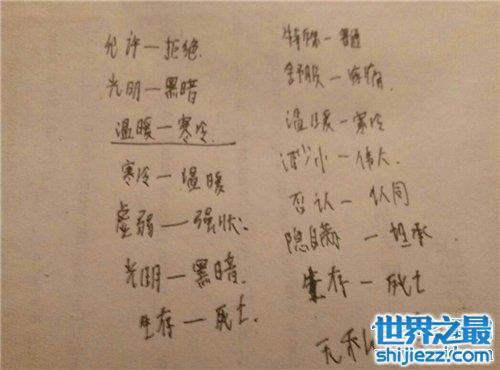 允许—拒绝.
光明—黑暗
温暖—寒冷.
寒冷—温暖
虚弱—强壮.
光明—黑暗.
生存—死亡.
特殊—普通
舒服—疼痛
温暖—寒冷
渺小—伟大.
否认—认同
隐瞒—坦承
生存—死亡
无私
世界之最
shijiezz.com